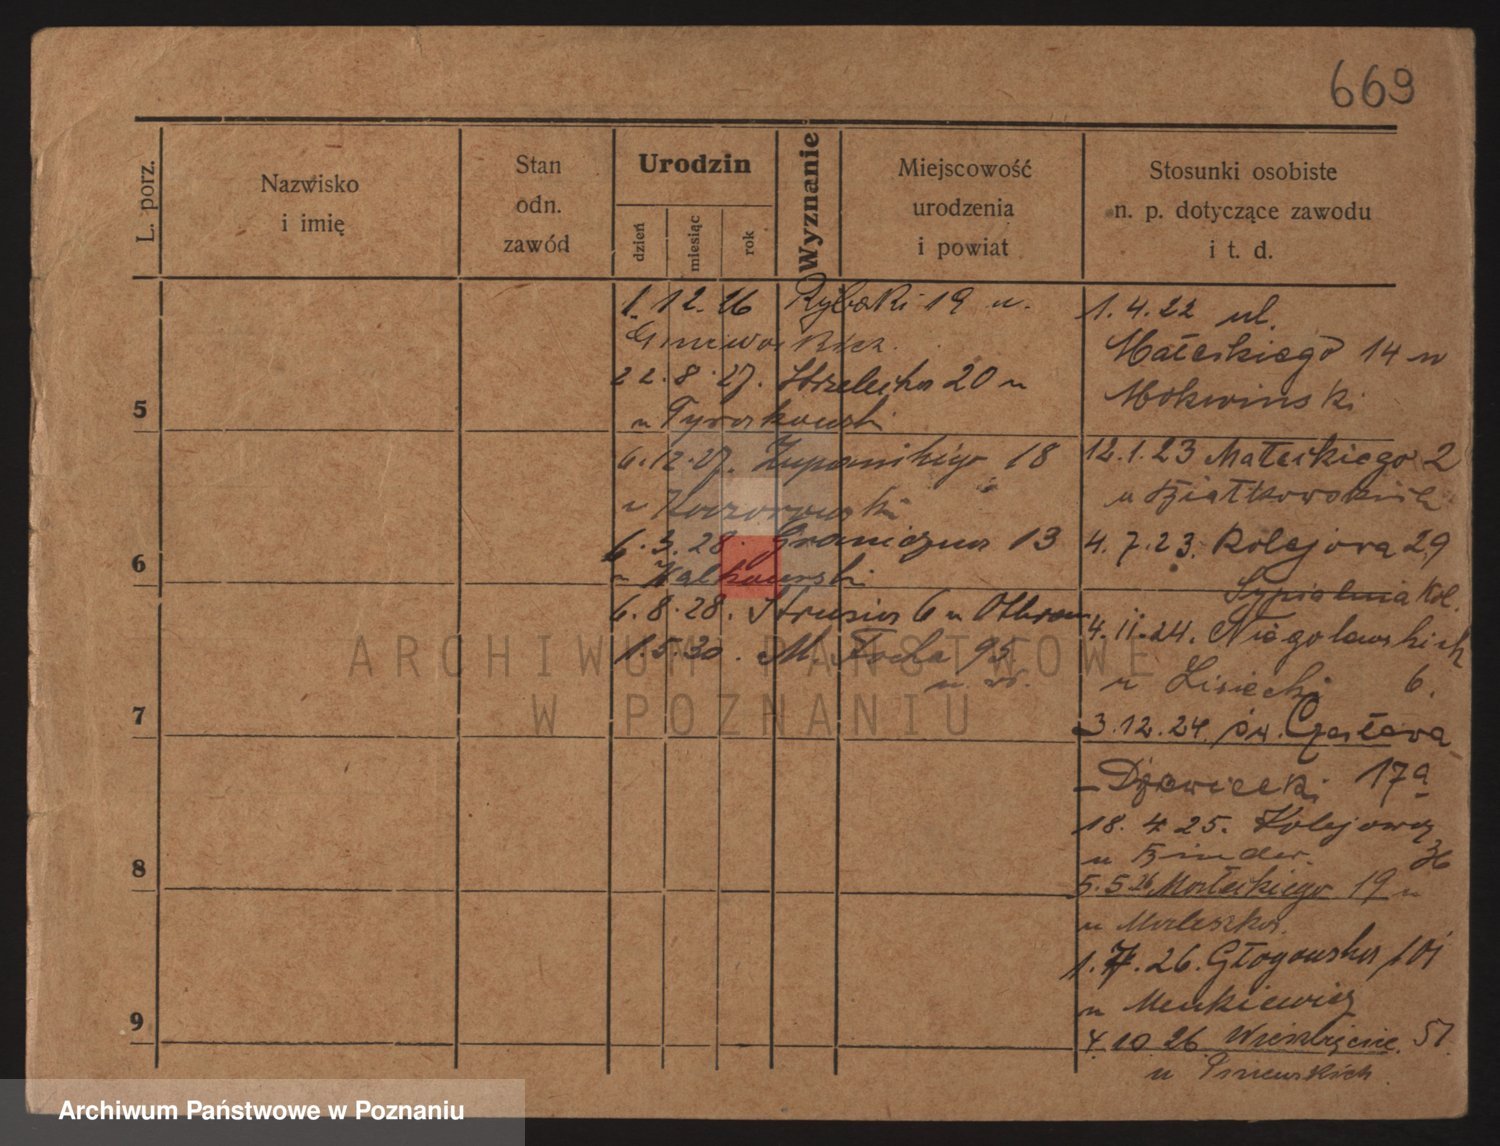 669
L. porz.
Nazwisko
i imię
Stan
odn.
zawód
Urodzin
dzień
miesiąc
rok
Wyznanie
Miejscowość
urodzenia
i powiat
Stosunki osobiste
n. p. dotyczące zawodu
i t. d.
5
6
7
8
9
1. 12. 26 Rybaki 19 u.
22. 8. 27. Strzelecka 20 u
u
6. 12. 27. Żupańskiego 18
u
6. 3. 28. Graniczna 13
u Walkowski
6. 8. 28. Strusia 6 u
1. 5. 30. M. Focha 95
u. w.
1. 4. 22 ul.
Małeckiego 14 u
Mokwinski
12. 1. 23 Małeckiego 2
u
4. 7. 23. Kolejowa 29
4. 11. 24. Niegolewskich
u Lisiecki 6.
3. 12. 24. św. Czesława
17a
18. 4. 25. Kolejowa
u Binder. 36
5. 5. 26 Małeckiego 19 u
u
1. 7. 26. Głogowska 101
u
4. 10. 26. Wierzbięcic. 51
u Pniewskich
ARCHIWUM PAŃSTWOWE
W POZNANIU
Archiwum Państwowe w Poznaniu